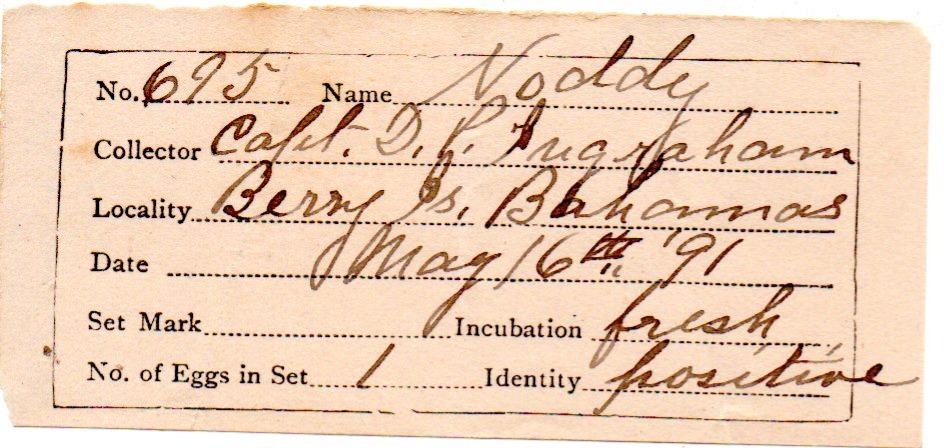 No. 695 Name Noddy
Collector Capt. D. P. Ingraham
Locality Berry Is. Bahamas
Date May 16th '91
Set Mark Incubation fresh
No. of Eggs in Set 1 Identity positive